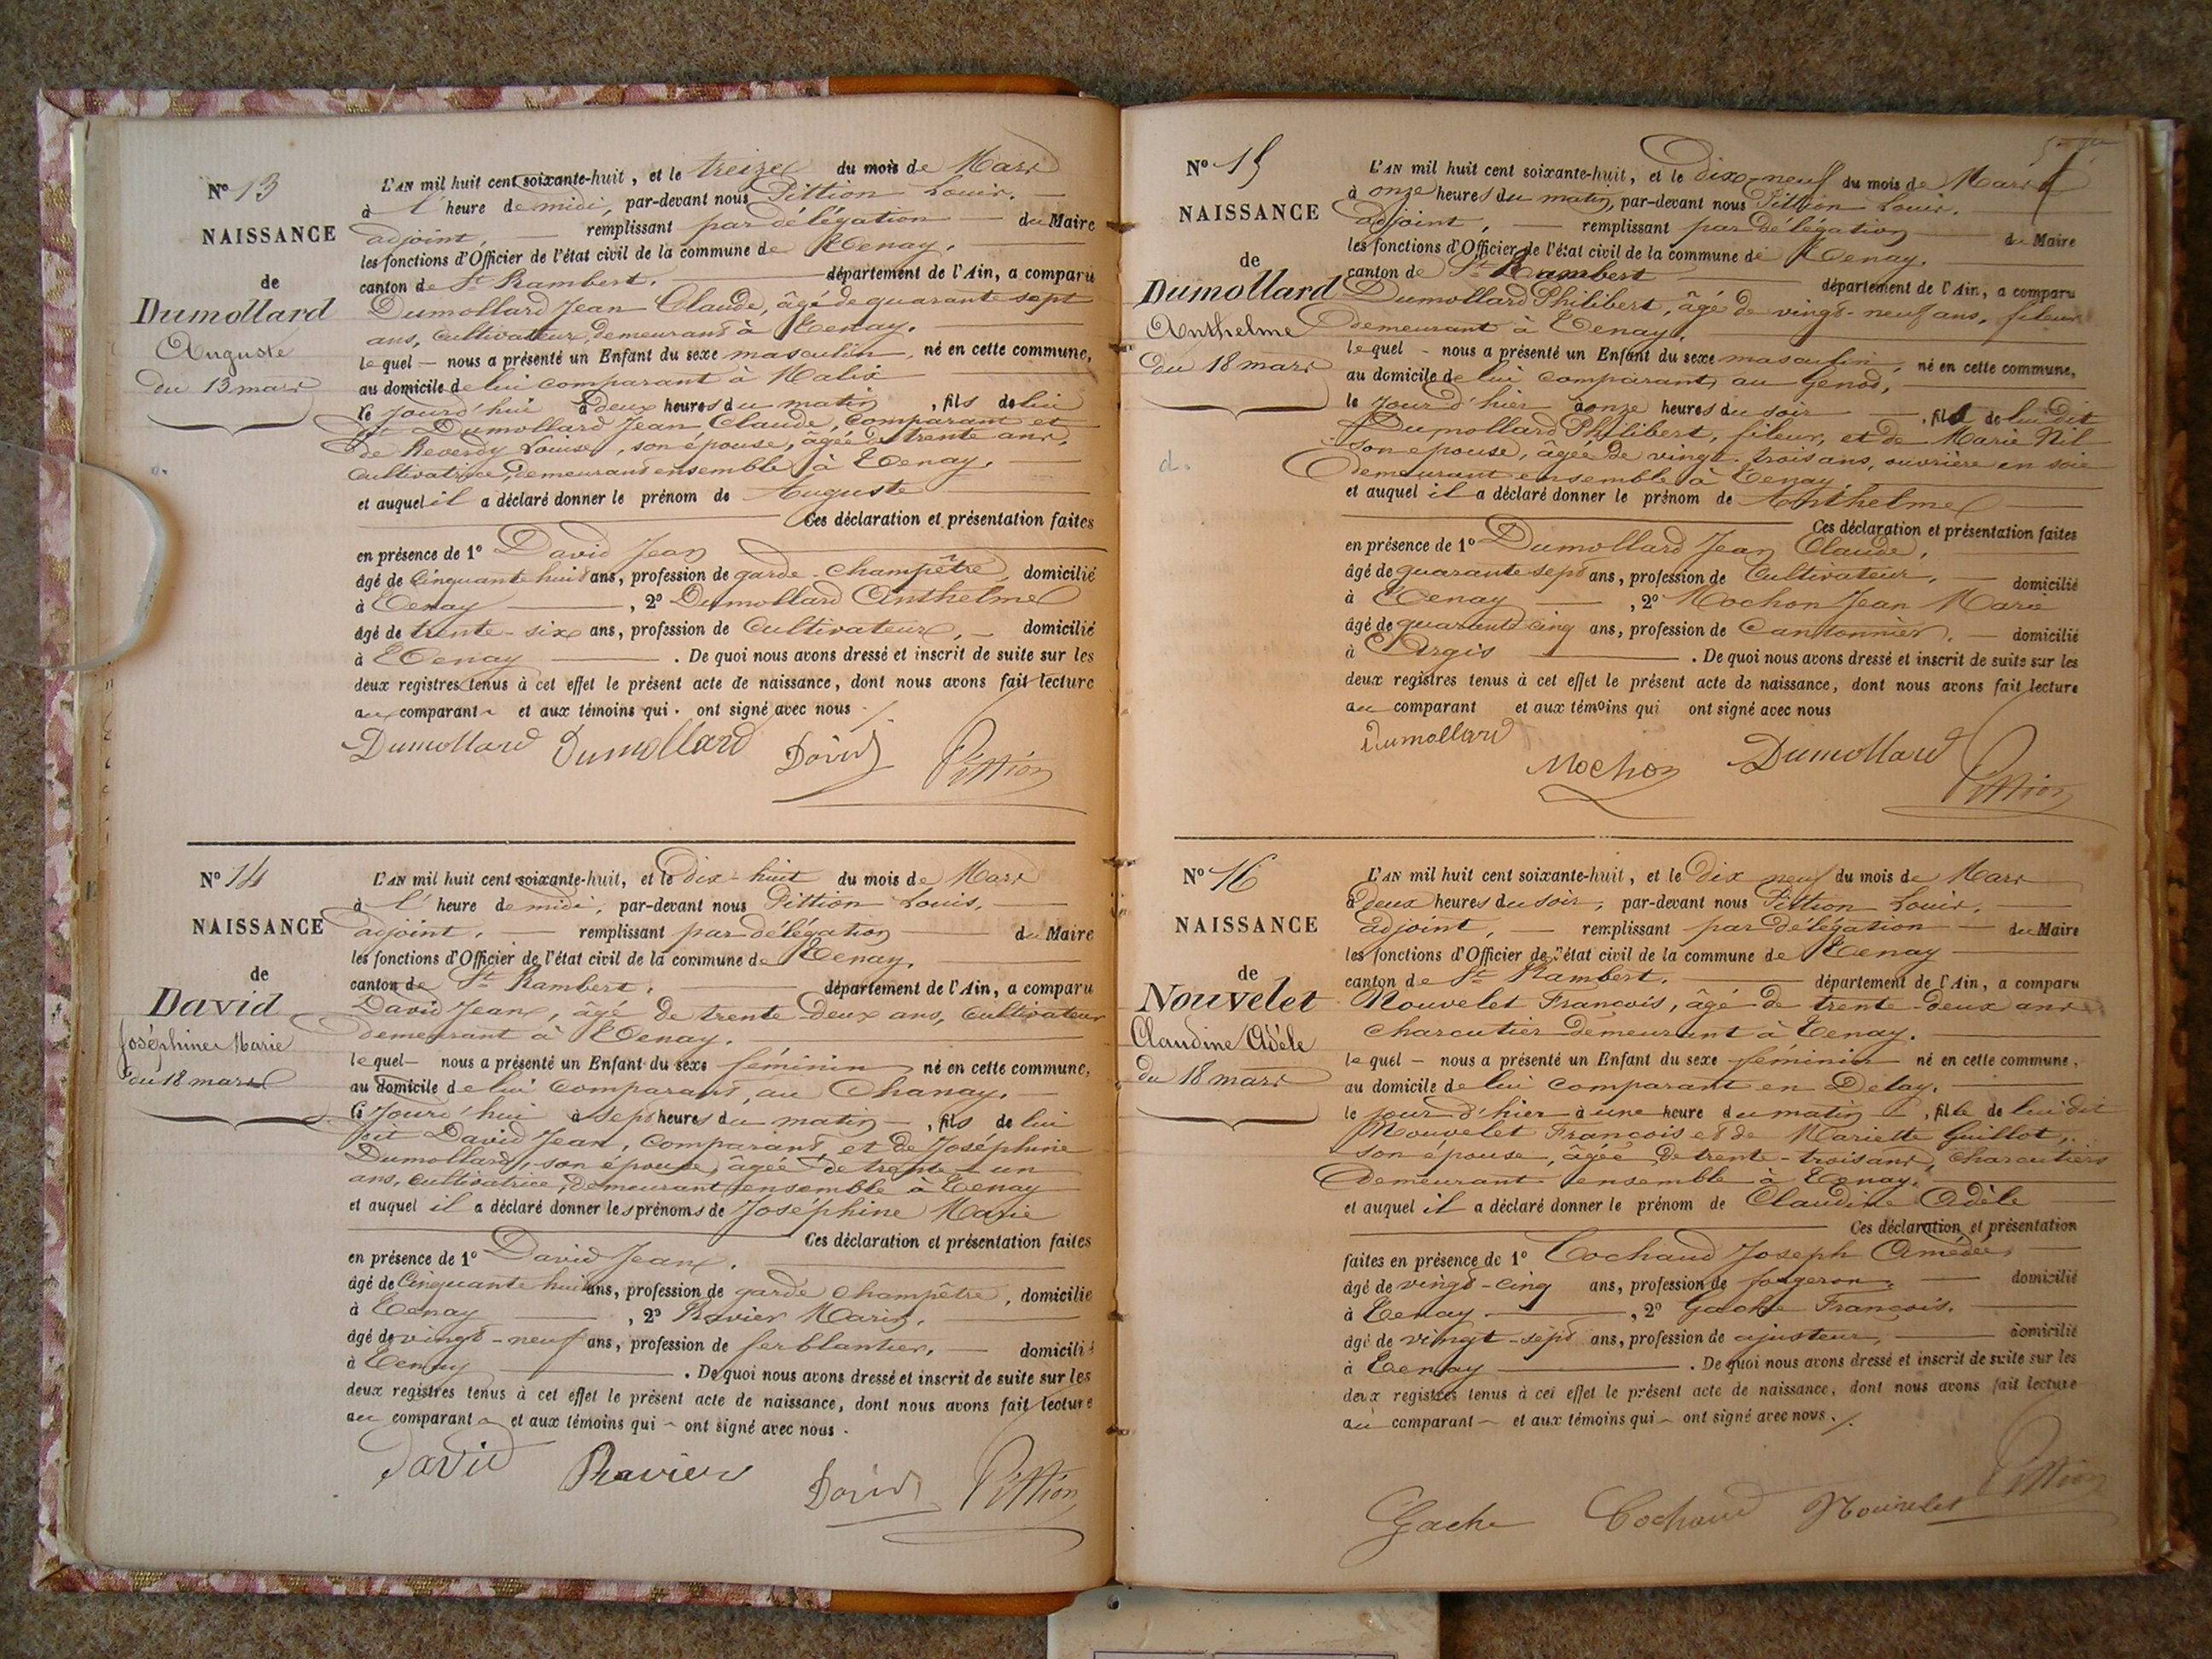 N° 13
NAISSANCE
de
Dumollard
Auguste
du 13 mars
L'AN mil huit cent soixante-huit, et le treize du mois de Mars
à l' heure de midi, par-devant nous Pittion Louis.
adjoint, remplissant par délégation du Maire
les fonctions d'Officier de l'état civil de la commune de Tenay.
canton de St Rambert. département de l'Ain, a comparu
Dumollard Jean Claude, âgé de quarante sept
ans, cultivateur, demeurant à Tenay.
lequel nous a présenté un Enfant du sexe masculin, né en cette commune,
au domicile de lui comparant à Malix
le jourd'hui à deux heures du matin, fils de lui
dit Dumollard Jean Claude, comparant et
de Reverdy Louise, son épouse, âgée de trente ans,
cultivatrice, demeurant ensemble à Tenay.
et auquel il a déclaré donner le prénom de Auguste
Ces déclaration et présentation faites
en présence de 1° David Jean
âgé de cinquante huit ans, profession de garde-champêtre, domicilié
à Tenay, 2° Dumollard Anthelme
âgé de trente-six ans, profession de cultivateur, domicilié
à Tenay. De quoi nous avons dressé et inscrit de suite sur les
deux registres tenus à cet effet le présent acte de naissance, dont nous avons fait lecture
au comparant et aux témoins qui ont signé avec nous.
Dumollard Dumollard David Pittion
N° 14
NAISSANCE
de
David
Joséphine Marie
du 18 mars
L'AN mil huit cent soixante-huit, et le dix-huit du mois de Mars
à l' heure de midi, par-devant nous Pittion Louis,
adjoint, remplissant par délégation du Maire
les fonctions d'Officier de l'état civil de la commune de Tenay.
canton de St Rambert. département de l'Ain, a comparu
David Jean, âgé de trente-deux ans, cultivateur
demeurant à Tenay.
lequel nous a présenté un Enfant du sexe féminin né en cette commune,
au domicile de lui comparant, au Chanay.
le jourd'hui à sept heures du matin, fils de lui
dit David Jean, comparant et de Joséphine
Dumollard, son épouse, âgée de trente-un
ans, cultivatrice, demeurant ensemble à Tenay
et auquel il a déclaré donner les prénoms de Joséphine Marie
Ces déclaration et présentation faites
en présence de 1° David Jean.
âgé de cinquante huit ans, profession de garde champêtre, domicilié
à Tenay, 2° Ravier Marin.
âgé de vingt-neuf ans, profession de ferblantier, domicilié
à Tenay. De quoi nous avons dressé et inscrit de suite sur les
deux registres tenus à cet effet le présent acte de naissance, dont nous avons fait lecture
au comparant et aux témoins qui ont signé avec nous.
David Ravier David Pittion
N° 15
NAISSANCE
de
Dumollard
Anthelme
du 18 mars
L'AN mil huit cent soixante-huit, et le dix-neuf du mois de Mars
à onze heures du matin, par-devant nous Pittion Louis.
adjoint, remplissant par délégation du Maire
les fonctions d'Officier de l'état civil de la commune de Tenay.
canton de St Rambert département de l'Ain, a comparu
Dumollard Philibert, âgé de vingt-neuf ans, fileur
demeurant à Tenay.
lequel nous a présenté un Enfant du sexe masculin, né en cette commune,
au domicile de lui comparant, au Genod,
le jour d'hier à onze heures du soir, fils de lui dit
Dumollard Philibert, fileur, et de Marie Nil
son épouse, âgée de vingt-trois ans, ouvrière en soie
demeurant ensemble à Tenay.
et auquel il a déclaré donner le prénom de Anthelme
Ces déclaration et présentation faites
en présence de 1° Dumollard Jean Claude,
âgé de quarante sept ans, profession de cultivateur, domicilié
à Tenay, 2° Mochon Jean Marie
âgé de quarante cinq ans, profession de Cantonnier, domicilié
à Argis. De quoi nous avons dressé et inscrit de suite sur les
deux registres tenus à cet effet le présent acte de naissance, dont nous avons fait lecture
au comparant et aux témoins qui ont signé avec nous
Dumollard Mochon Dumollard Pittion
N° 16
NAISSANCE
de
Nouvelet
Claudine Adèle
du 18 mars
L'AN mil huit cent soixante-huit, et le dix neuf du mois de Mars
à deux heures du soir, par-devant nous Pittion Louis,
adjoint, remplissant par délégation du Maire
les fonctions d'Officier de l'état civil de la commune de Tenay
canton de St Rambert. département de l'Ain, a comparu
Nouvelet François, âgé de trente-deux ans
charcutier demeurant à Tenay.
lequel nous a présenté un Enfant du sexe féminin né en cette commune,
au domicile de lui comparant en Delay.
le jour d'hier à une heure du matin, fille de lui dit
Nouvelet François et de Mariette Guillot,
son épouse, âgée de trente-trois ans, charcutiers
demeurant ensemble à Tenay.
et auquel il a déclaré donner le prénom de Claudine Adèle
Ces déclaration et présentation
faites en présence de 1° Cochaud Joseph Amédée,
âgé de vingt-cinq ans, profession de forgeron, domicilié
à Tenay, 2° Gache François.
âgé de vingt-sept ans, profession de ajusteur, domicilié
à Tenay. De quoi nous avons dressé et inscrit de suite sur les
deux registres tenus à cet effet le présent acte de naissance, dont nous avons fait lecture
au comparant et aux témoins qui ont signé avec nous.
Gache Cochaud Nouvelet Pittion